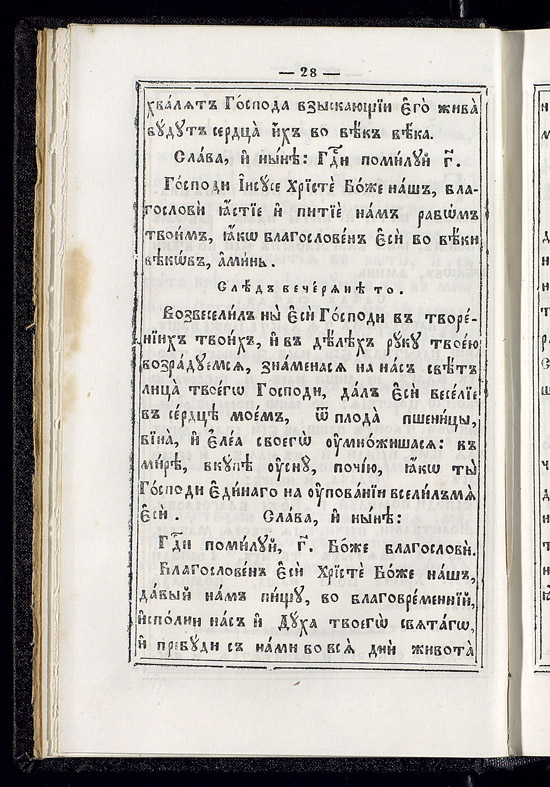 — 28 —
хва́лятъ Го́спода взыскающїи Є҆го̀ жива̀
бꙋ́дꙋтъ сердца̀ и҆́хъ во вѣ́къ вѣ́ка.
Сла́ва, и҆ ны́нѣ: Гдⷭ҇и поми́лꙋй г҃.
Го́споди І҆исꙋ́се Хрїстѐ Бо́же на́шъ, бла-
гословѝ ꙗ҆́стїе и҆ питїѐ на́мъ рабѡ́мъ
твои̑мъ, ꙗ҆́кѡ благослове́нъ Є҆сѝ во вѣ́ки
вѣкѡ́въ, а҆ми́нь.
Слѣ́дъ вечерянѣ то.
Возвесели́лъ ны Є҆сѝ Го́споди въ творе́-
нїихъ твои́хъ, и҆ въ дѣ́лѣхъ рꙋкꙋ твоє́ю
возра́дꙋемся, зна́менася на на́съ свѣ́тъ
лица̀ твоегѡ̀ Господи, да́лъ Є҆сѝ весе́лїе
въ се́рдцѣ мое́мъ, ѿ плода̀ пшеницы,
вїна̀, и҆ Є҆ле́а своегѡ̀ оу҆мно́жишася: въ
ми́рѣ, вкꙋ́пѣ оу҆снꙋ̀, почі́ю, ꙗ҆́кѡ ты̀
Го́споди Є҆ди́наго на оу҆пова́нїи всели́лъмѧ
Є҆сѝ. Сла́ва, и҆ ны́нѣ:
Гдⷭ҇и поми́лꙋй, г҃. Бо́же благословѝ.
Благослове́нъ Є҆сѝ Хрїстѐ Бо́же на́шъ,
да́вый на́мъ пи́щꙋ, во благовре́меннїй,
и҆спо́лни на́съ и҆ Дꙋ́ха твоегѡ̀ свята́гѡ,
и҆ пребꙋ́ди съ на́ми во всѧ̀ днѝ живота̀